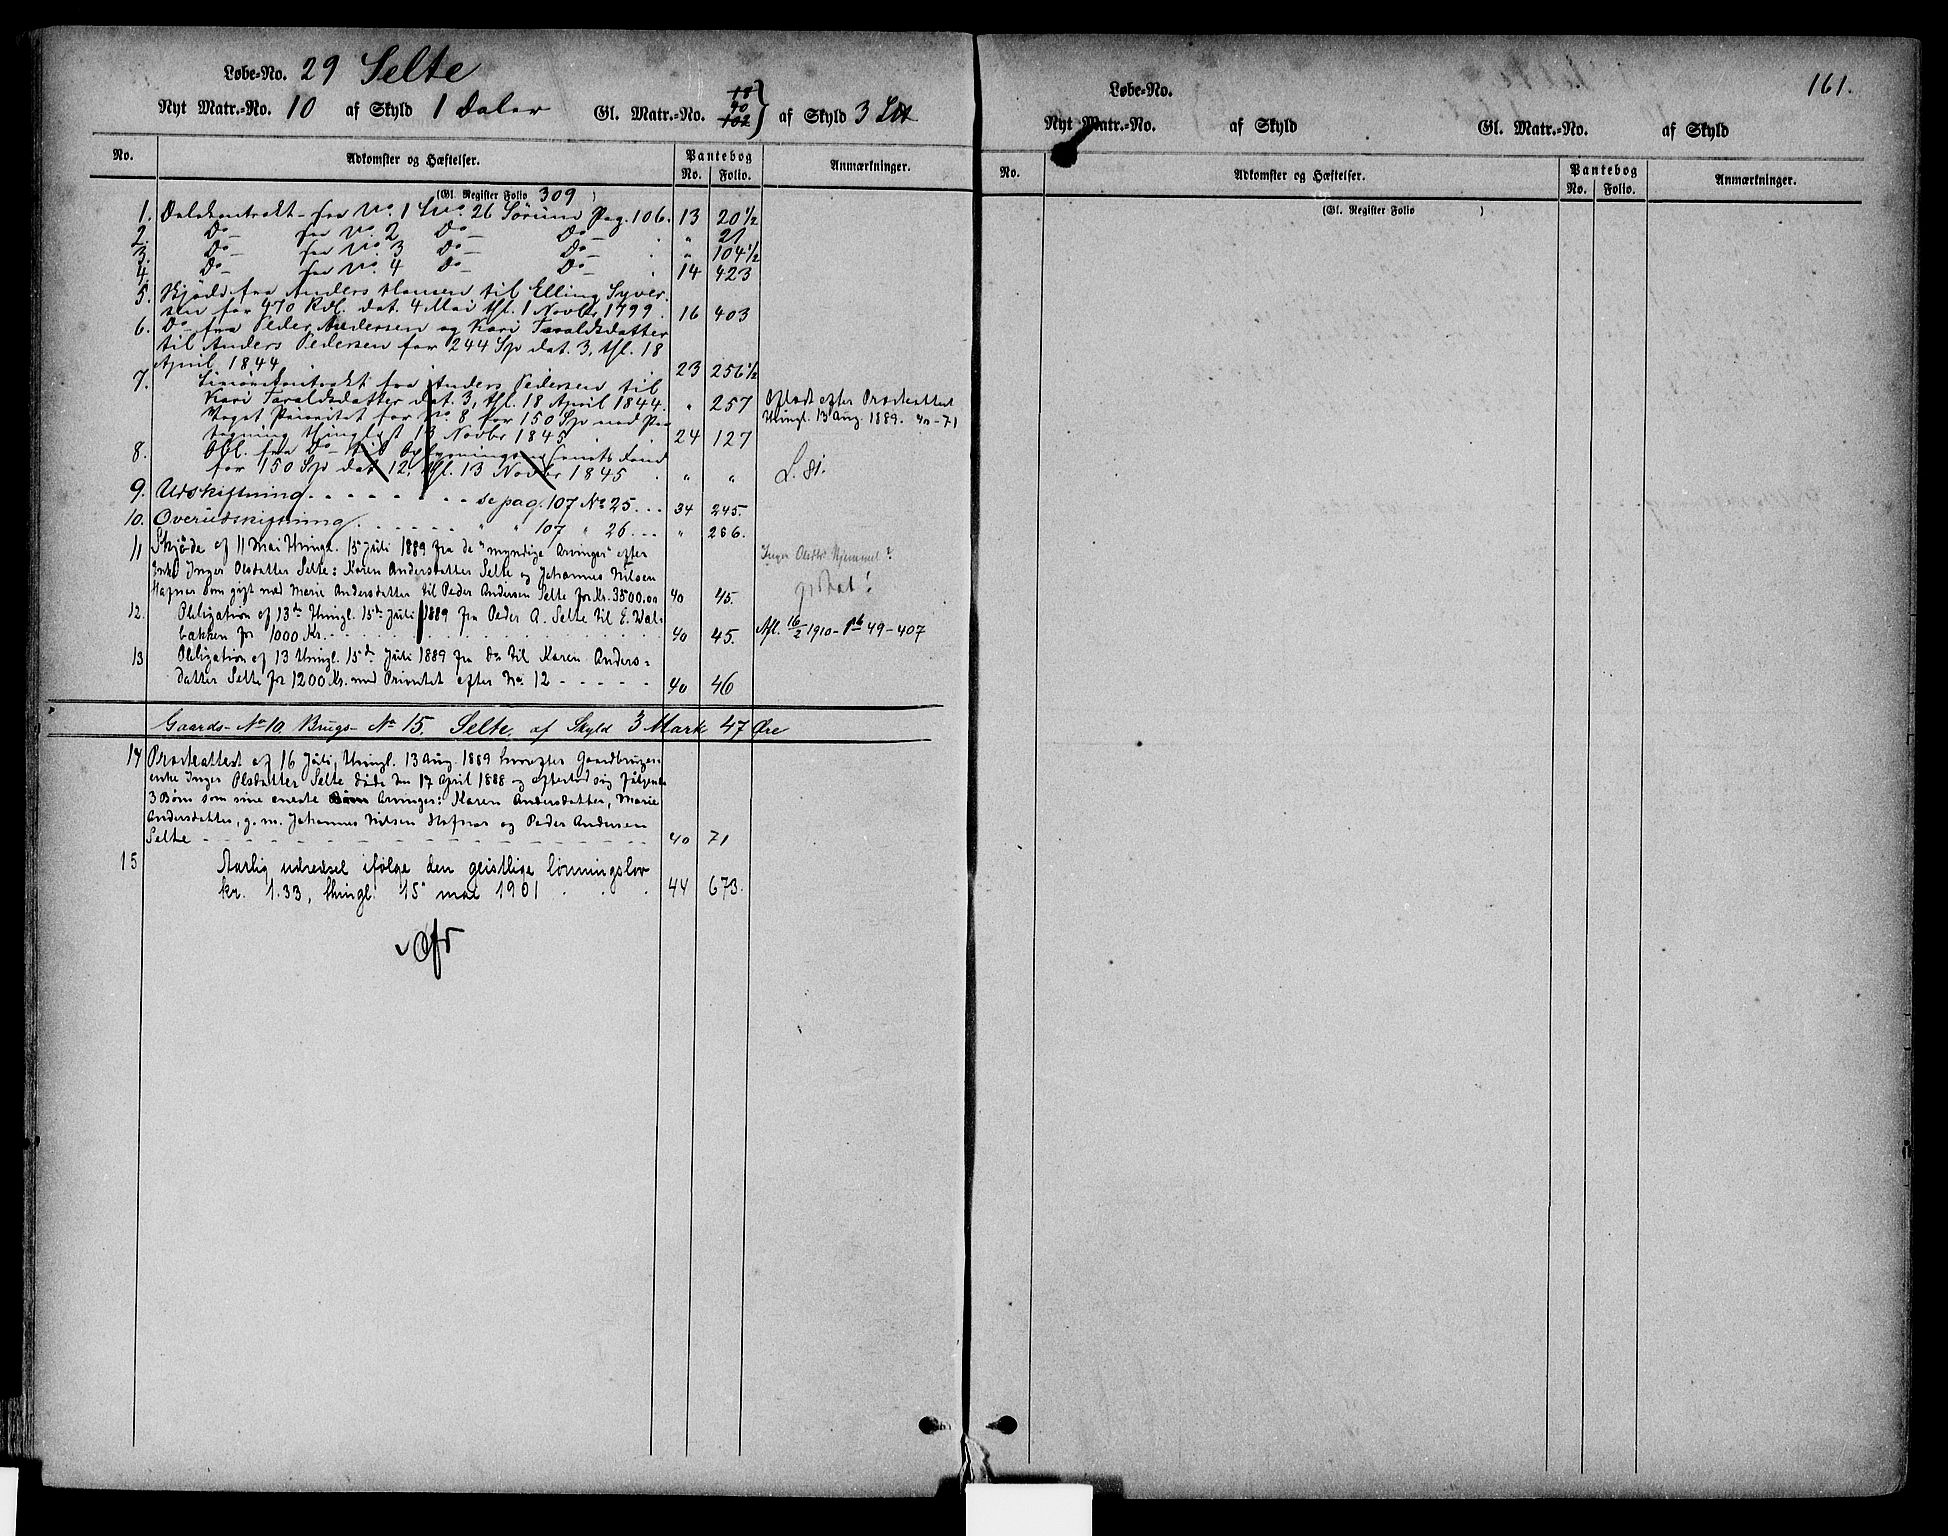 Løbe-No. 29 Selte
Nyt Matr.-No. 10 af Skyld 1 Daler Gl. Matr.-No. 90 102 af Skyld 3 L℔
No. Adkomster og Hæftelser. Pantebog No. Folio. Anmærkninger.
(Gl. Register Folio 309 )
1. Delekontrakt fra No. 1 26 Sörum Pag. 106. 13 20 1/2
2. Do No. 2 Do Do " 21
3. Do No. 3 Do Do " 104 1/2
4. Do No. 4 Do Do 14 423
5. Skjöde fra Anders Hansen til Elling Syver-
sen for 470 Rdl. dat. 4 Mai thl. 1 Novbr 1799. 16 403
6. Do fra Peder Andersen og Kari Taraldsdatter
til Anders Pedersen for 244 Sp dat. 3, thl. 18
April 1844 23 256 1/2
7. kontrakt fra Anders Pedersen til
Kari Taraldsdatter dat. 3, thl. 18 April 1844. " 257 Aflöst efter Proveattest
Prioritet for No 8 for 150 Sp ved Paa- thingl. 13 Aug. 1889. 40-71
tegning thinglæst 13 Novbr 1845 24 127
8. Obl. fra Do til Oplysningsvæsenets Fond
for 150 Sp dat. 12, thl. 13 Novbr 1845 " "
9. Udskiftning - - - - se pag. 107 No 25 . . . 34 245.
10. Overudskiftning . . . . . " " 107 " 26 . . . " 266.
11 Skjøde af 11 Mai thingl. 15 Juli 1889 fra de "myndige Arvinger" efter
Enke Inger Olsdatter Selte: Karen Andersdatter Selte og Johannes Nilsen
Hafnor som gift med Marie Andersdatter til Peder Andersen Selte for Kr. 3500.00 40 45.
12. Obligation af 13de thingl. 15de Juli 1889 fra Peder A. Selte til E. Wal-
bakken for 1000 Kr. 40 45. Afl. 16/2 1910 - Pb 49-407
13 Obligation af 13 thingl. 15de Juli 1889 fra do til Karen Anders-
datter Selte for 1200 Kr. med Prioritet efter No. 12 - - - - - 40 46
Gaards-No 10. Brugs-No 15. Selte. af Skyld 3 Mark 47 Øre
14 Proveattest af 16 Juli, thingl. 13 Aug. 1889 hvorefter Gaardbruger-
enke Inger Olsdatter Selte døde den 17 April 1888 og efterlod sig følgende
3 Børn som sine eneste Arvinger: Karen Andersdatter, Marie
Andersdatter, g. m. Johannes Nilsen Hafnor og Peder Andersen
Selte - - - - - - - - - - - - - 40 71
15 Aarlig udredsel ifølge den geistlige lønningslov
kr. 1.33, thingl. 15 mai 1901 . . . 44 673.
161.
Løbe-No.
Nyt Matr.-No. af Skyld Gl. Matr.-No. af Skyld
No. Adkomster og Hæftelser. Pantebog No. Folio. Anmærkninger.
(Gl. Register Folio )